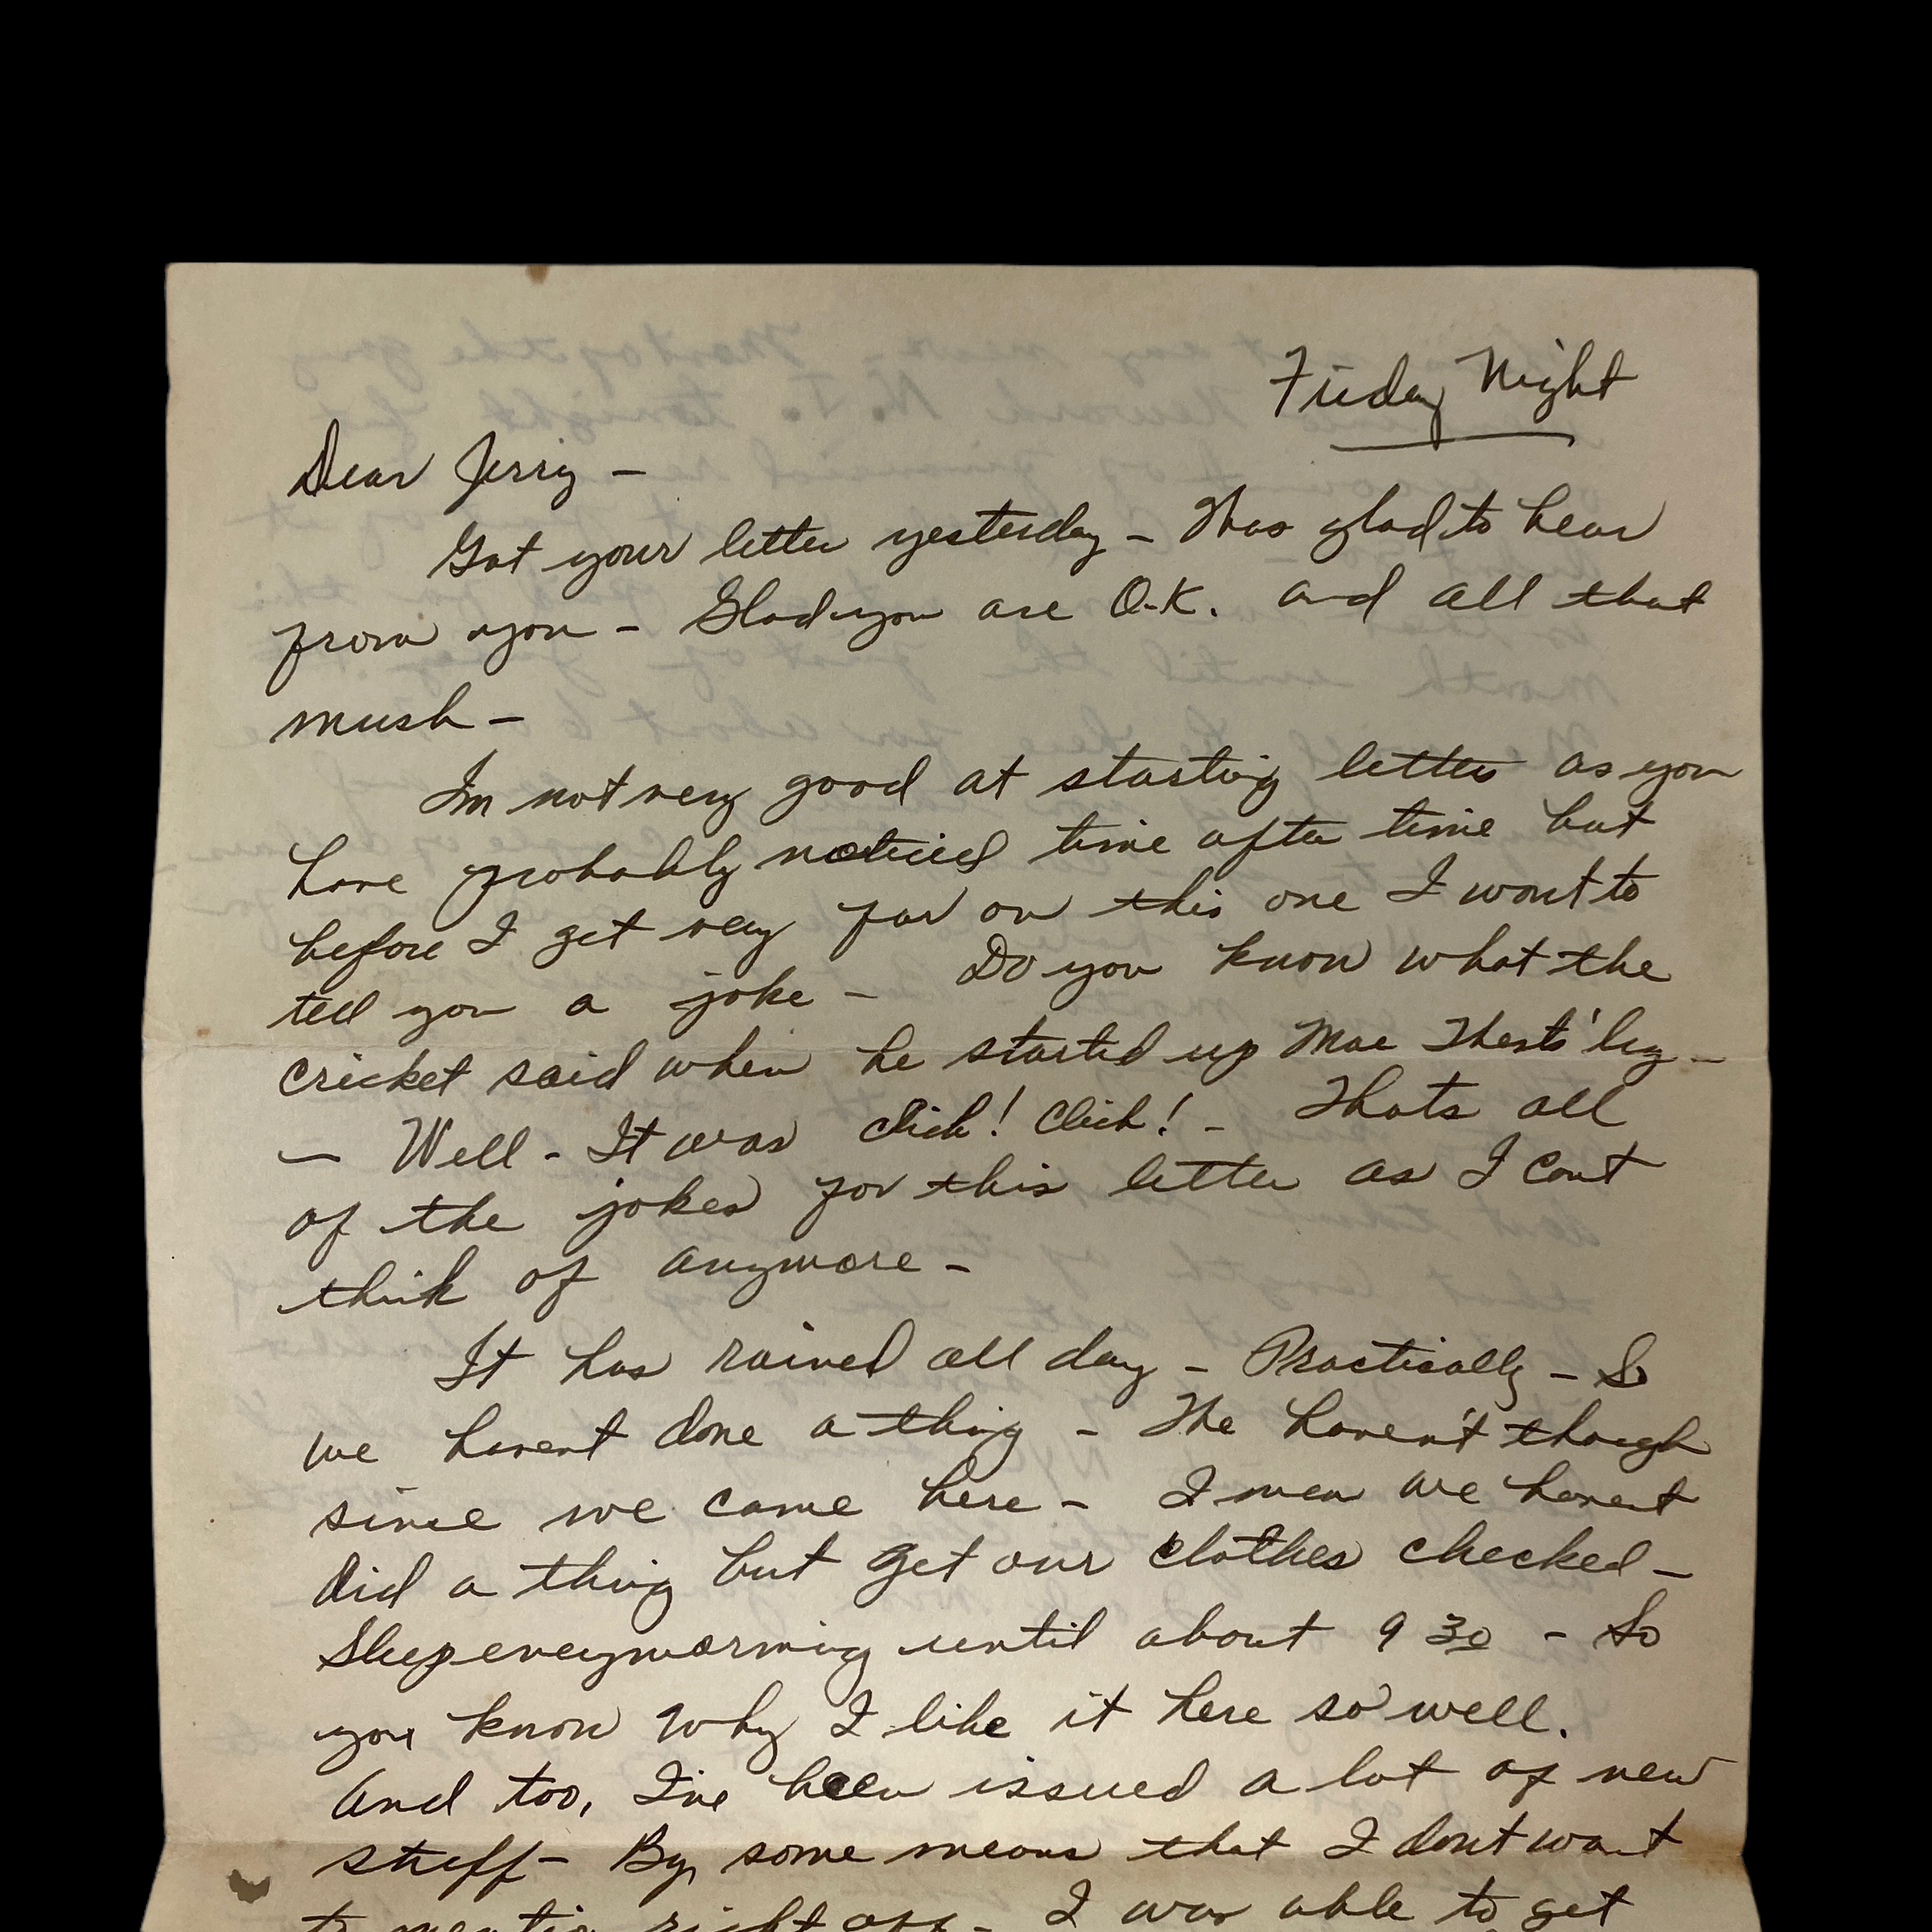 Friday Night
Dear Jerry -
Got your letter yesterday - Was glad to hear
from you - Glad you are O.K. and all that
mush -
Im not very good at starting letters as you
have probably noticed time after time but
before I get very far on this one I want to
tell you a joke - Do you know what the
cricket said when he started up Mae Wests' leg -
- Well - It was Click! Click! - Thats all
of the jokes for this letter as I cant
think of anymore -
It has rained all day - Practically - So
we havent done a thing - We haven't though
since we came here - I mean we havent
did a thing but get our clothes checked -
Sleep everymorning until about 9 30 - So
you know why I like it here so well.
And too, I've been issued a lot of new
stuff - By some means that I dont want
to mention right off - I was able to get